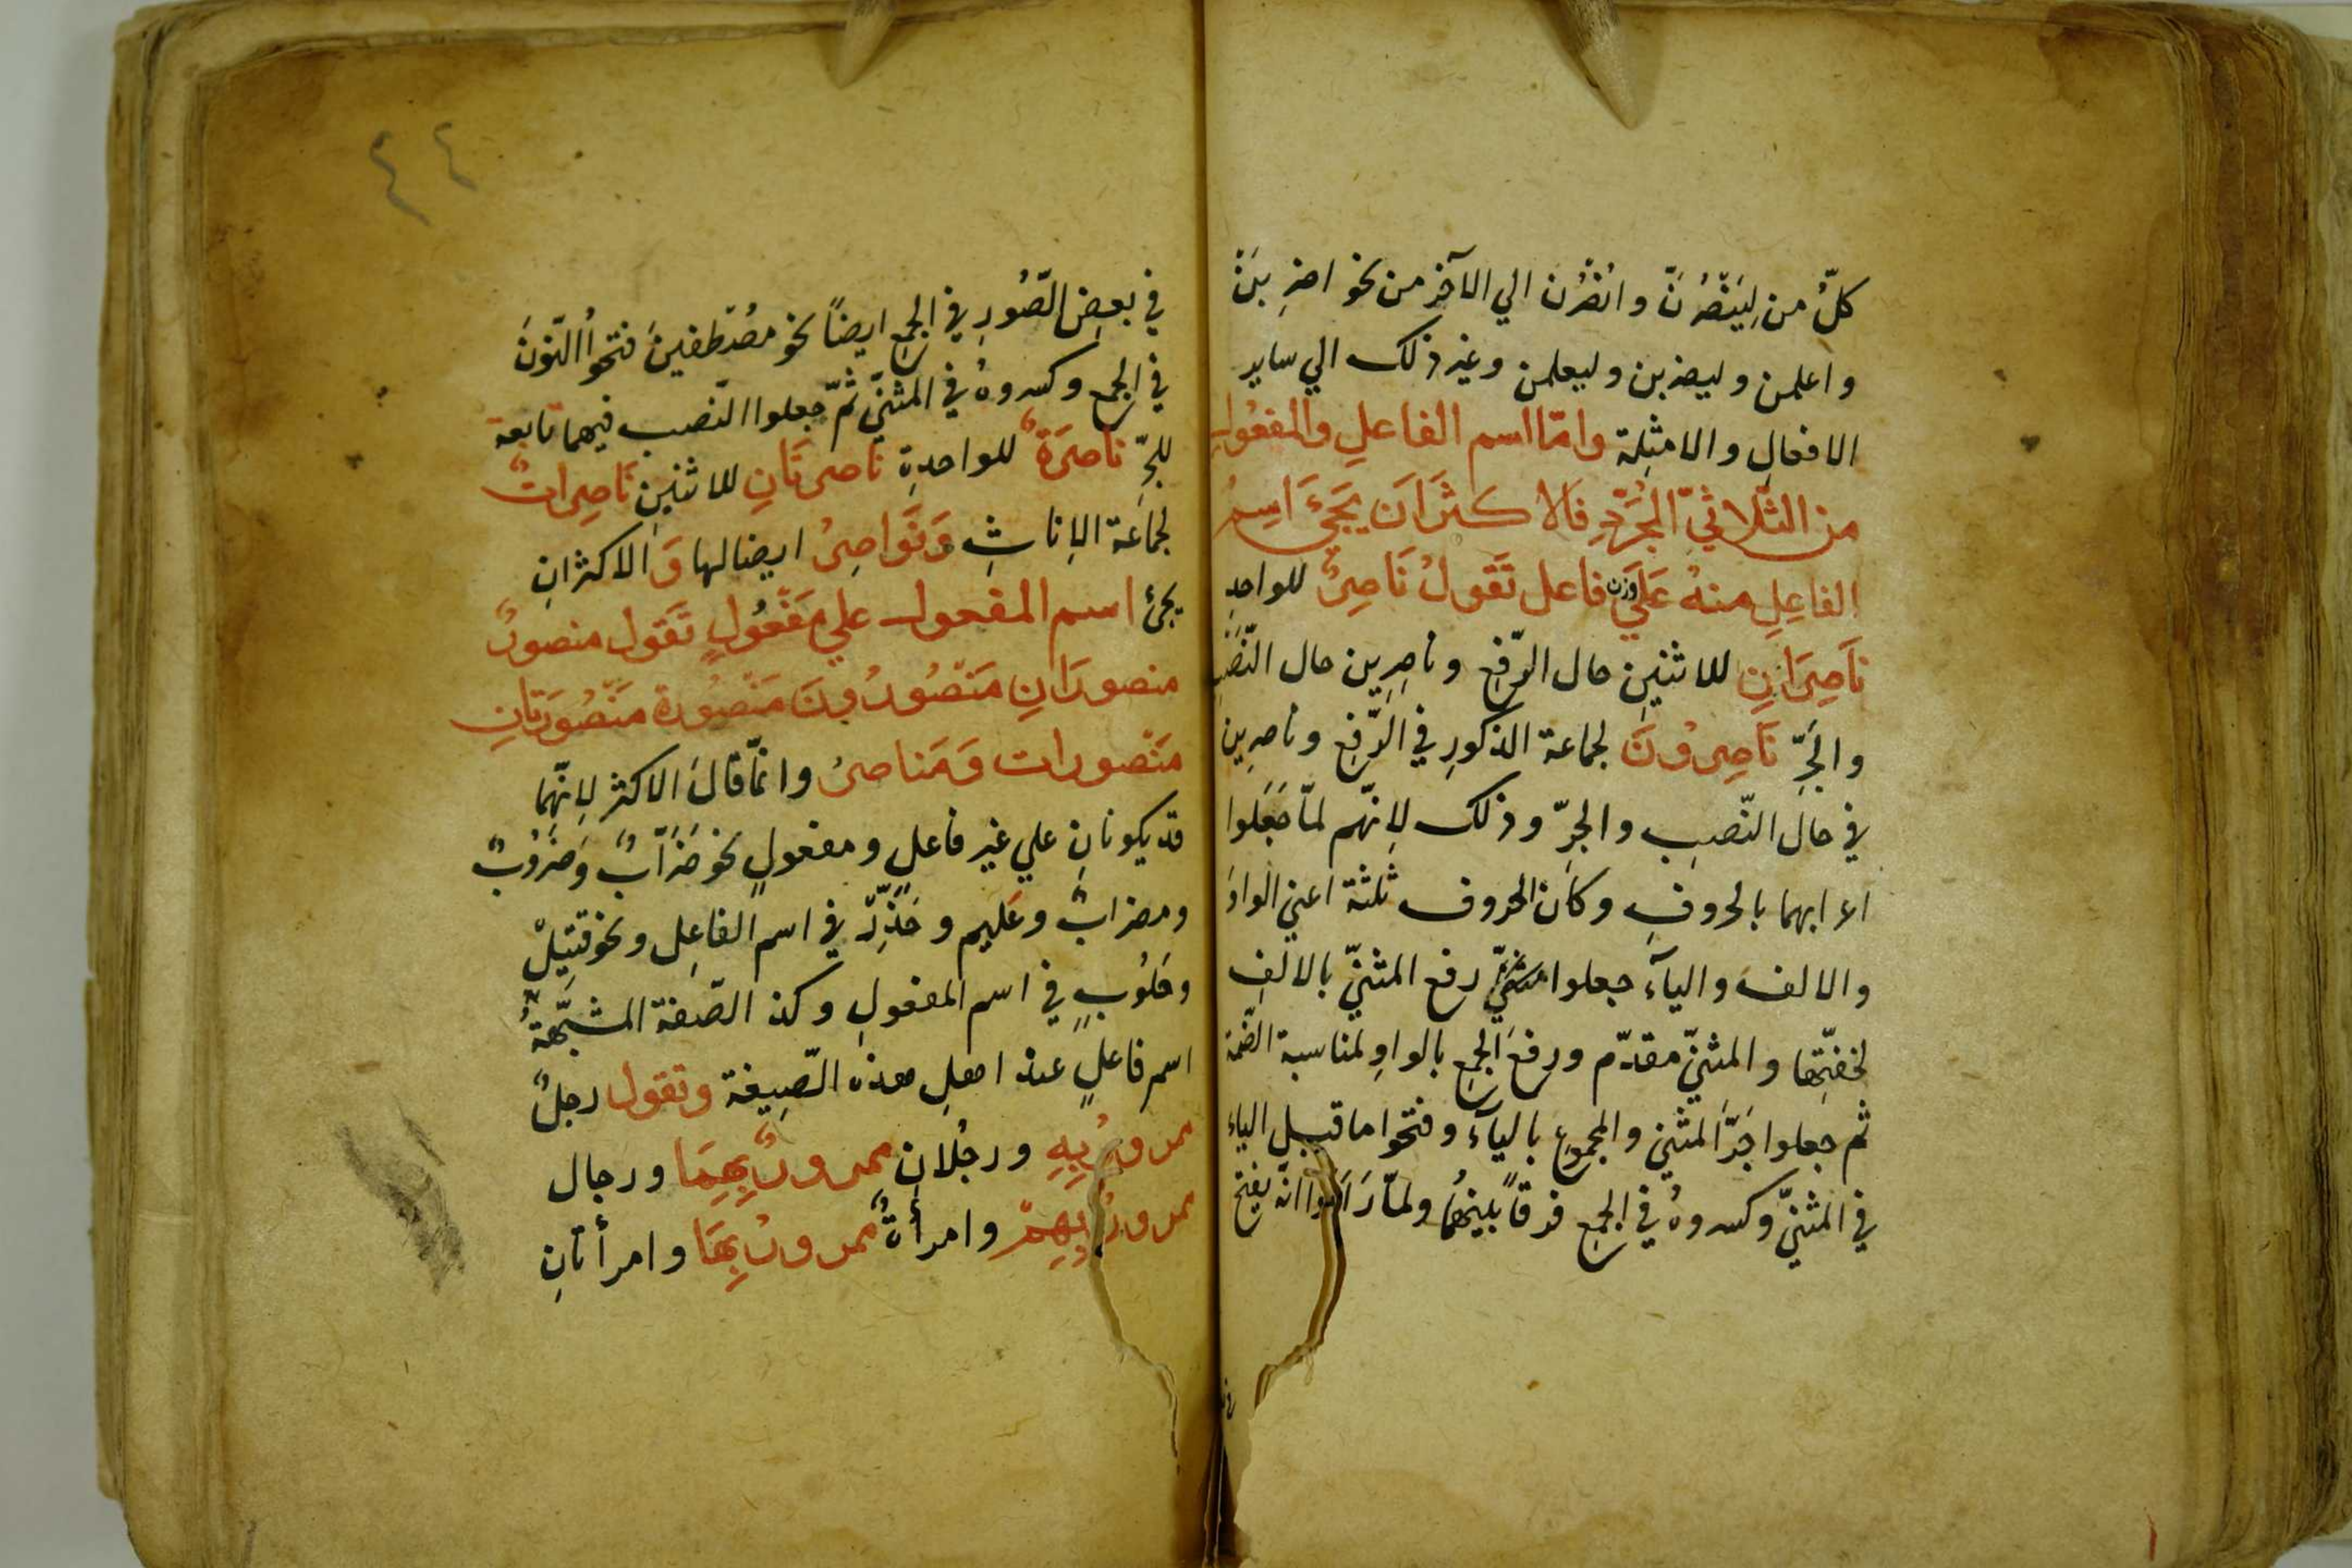 كلّ من لِيَنْصُرَنَّ وانْصُرْن الي الآخر من نحو اضرِبَنْ
واعلمن وليضربن وليعلمن وغير ذلك الي ساير
الافعالِ والامثِلة وامّا اسم الفاعلِ والمفعُول
من الثّلاثيّ المُجَرّدِ فَالاكثَر اَن يَجَئَ اسِمُ
الفاعِلِ منهُ عَلَي وزن فاعل تَقولُ نَاصِرٌ للواحدِ
نَاصِرَانِ للاثنينِ حال الرّفعِ وناصِرِين حال النّصَبِ
والجَرِّ نَاصِرُونَ لجماعة الذكورِ في الرّفعِ وناصرِين
في حال النّصبِ والجرّ وذلك لِانّهم لمّا جَعَلوا
اعرابهما بالحروفِ وكان الحروف ثلثة اعني الواوَ
والالفَ واليآءَ جعلوا مثنّي رفع المثنيّ بالالفِ
لخفّتِها والمثنيّ مقدّم ورفعَ الجمعِ بالواوِ لمناسبة الضّمة
ثم جعلوا جَرَّ المثنيّ والمجموعِ باليآءِ وفتحوا ما قبل الياء
في المثنيّ وكسروهُ في الجمع فرقاً بينهُما ولمّا رَاَوا انّه يفتح
٤٤
في بعضِ الصُّورِ في الجمعِ ايضاً نحو مصْطَفينَ فتحوُا النّونَ
في الجمعِ وكسروهُ في المثنيّ ثمّ جعلوا النّصب فيهما تابعة
للجرِّ نَاصِرَةٌ للواحدةِ نَاصرتَانِ للاثنينِ نَاصِراتٌ
لجمَاعَة الاِناثِ وَنَوَاصِرُ ايضا لها وَالاكثرُ ان
يجئ اسم المفعول علي مَفْعُولٍ تَقَول منصورٌ
منصورَانِ مَنْصُورُونَ مَنْصُورة مَنْصُورَتانِ
مَنْصورات وَمَناصرُ وانمّا قالَ الاكثر لِانّهمَا
قد يكونانِ علي غير فاعلٍ ومفعولٍ نحو ضَرّابٌ وَضَرُوبٌ
ومضرابٌ وعَليم وحَذِرٌ في اسم الفاعِل ونحو قتِيلْ
وحَلُوبٍ في اسم المفعولِ وكذ الصّفة المشبّهةُ
اسم فاعلٍ عند اهلِ هذه الصّيِغة وتقول رجلٌ
ممرورٌ بِهِ ورجُلانِ ممرورٌ بِهِمَا ورجال
ممرورٌ بِهِمْ وامرأةٌ ممرورٌ بِهَا وامرأتانِ